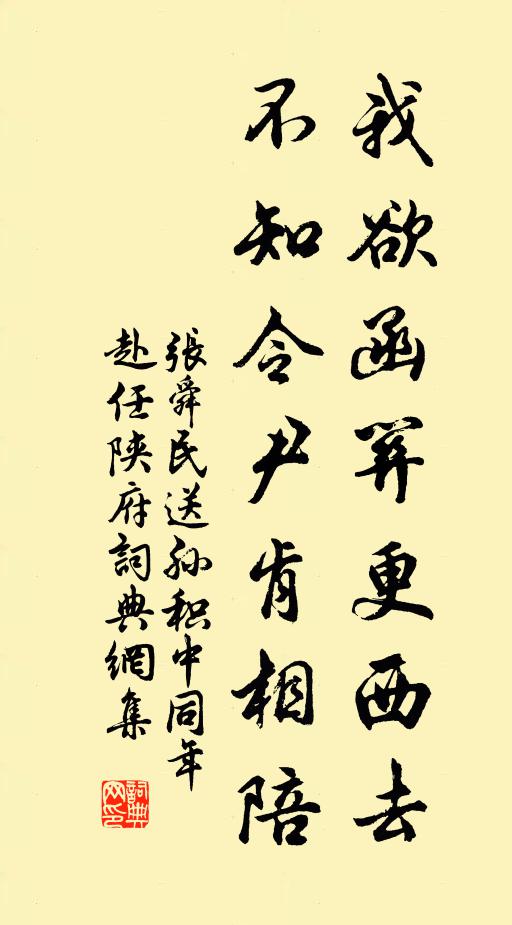 我欲函關更西去
不知令尹肯相陪
張舜民送孫積中同年
赴任陝府詞典網集
詞典网印